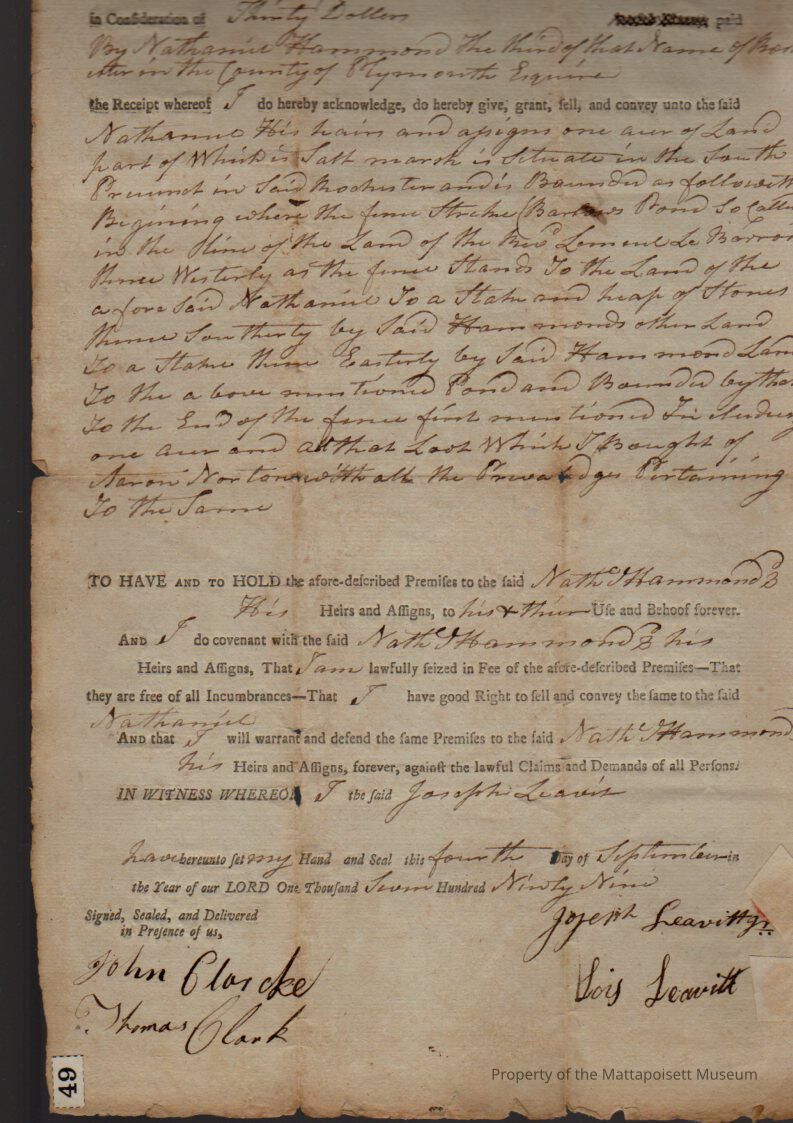 in Consideration of Thirty Dollars paid
By Nathaniel Hammond the third of that Name of
in the County of Plymouth Esquire
the Receipt whereof I do hereby acknowledge, do hereby give, grant, sell, and convey unto the said
Nathaniel His hairs and assigns one acer of Land
part of Which is Salt marsh is Situate in the South
Precinct in Said Rochester and is Bounded as followeth
Begining where the fence Strike Barlows Pond So Calle
in the line of the Land of the Revd Lemuel Le Barron
thence Westerly as the fence Stands To the Land of the
afore Said Nathaniel To a Stake and heap of Stones
thence Southerly by Said Hammonds other Land
To a Stake thence Easterly by Said Hammond Land
To the above mentioned Pond and Bounded by that
To the End of the fence first mentioned Including
one acer and all that Loot Which I Bought of
Aaron Norton with all the Privaledges Pertaining
To the Same
TO HAVE AND TO HOLD the afore-described Premises to the said Nathel Hammond 3
His Heirs and Assigns, to his & their Use and Behoof forever.
AND I do covenant with the said Nathel Hammond 3 his
Heirs and Assigns, That I am lawfully seized in Fee of the afore-described Premises—That
they are free of all Incumbrances—That I have good Right to sell and convey the same to the said
Nathaniel
AND that I will warrant and defend the same Premises to the said Nathel Hammond
his Heirs and Assigns, forever, against the lawful Claims and Demands of all Persons.
IN WITNESS WHEREOF I the said Joseph Leavit
have hereunto set my Hand and Seal this fourth Day of September in
the Year of our LORD One Thousand Seven Hundred Ninty Nine
Signed, Sealed, and Delivered
in Presence of us,
Joseph Leavitt jr
John Clarcke
Lois Leavitt
Thomas Clark
49
Property of the Mattapoisett Museum